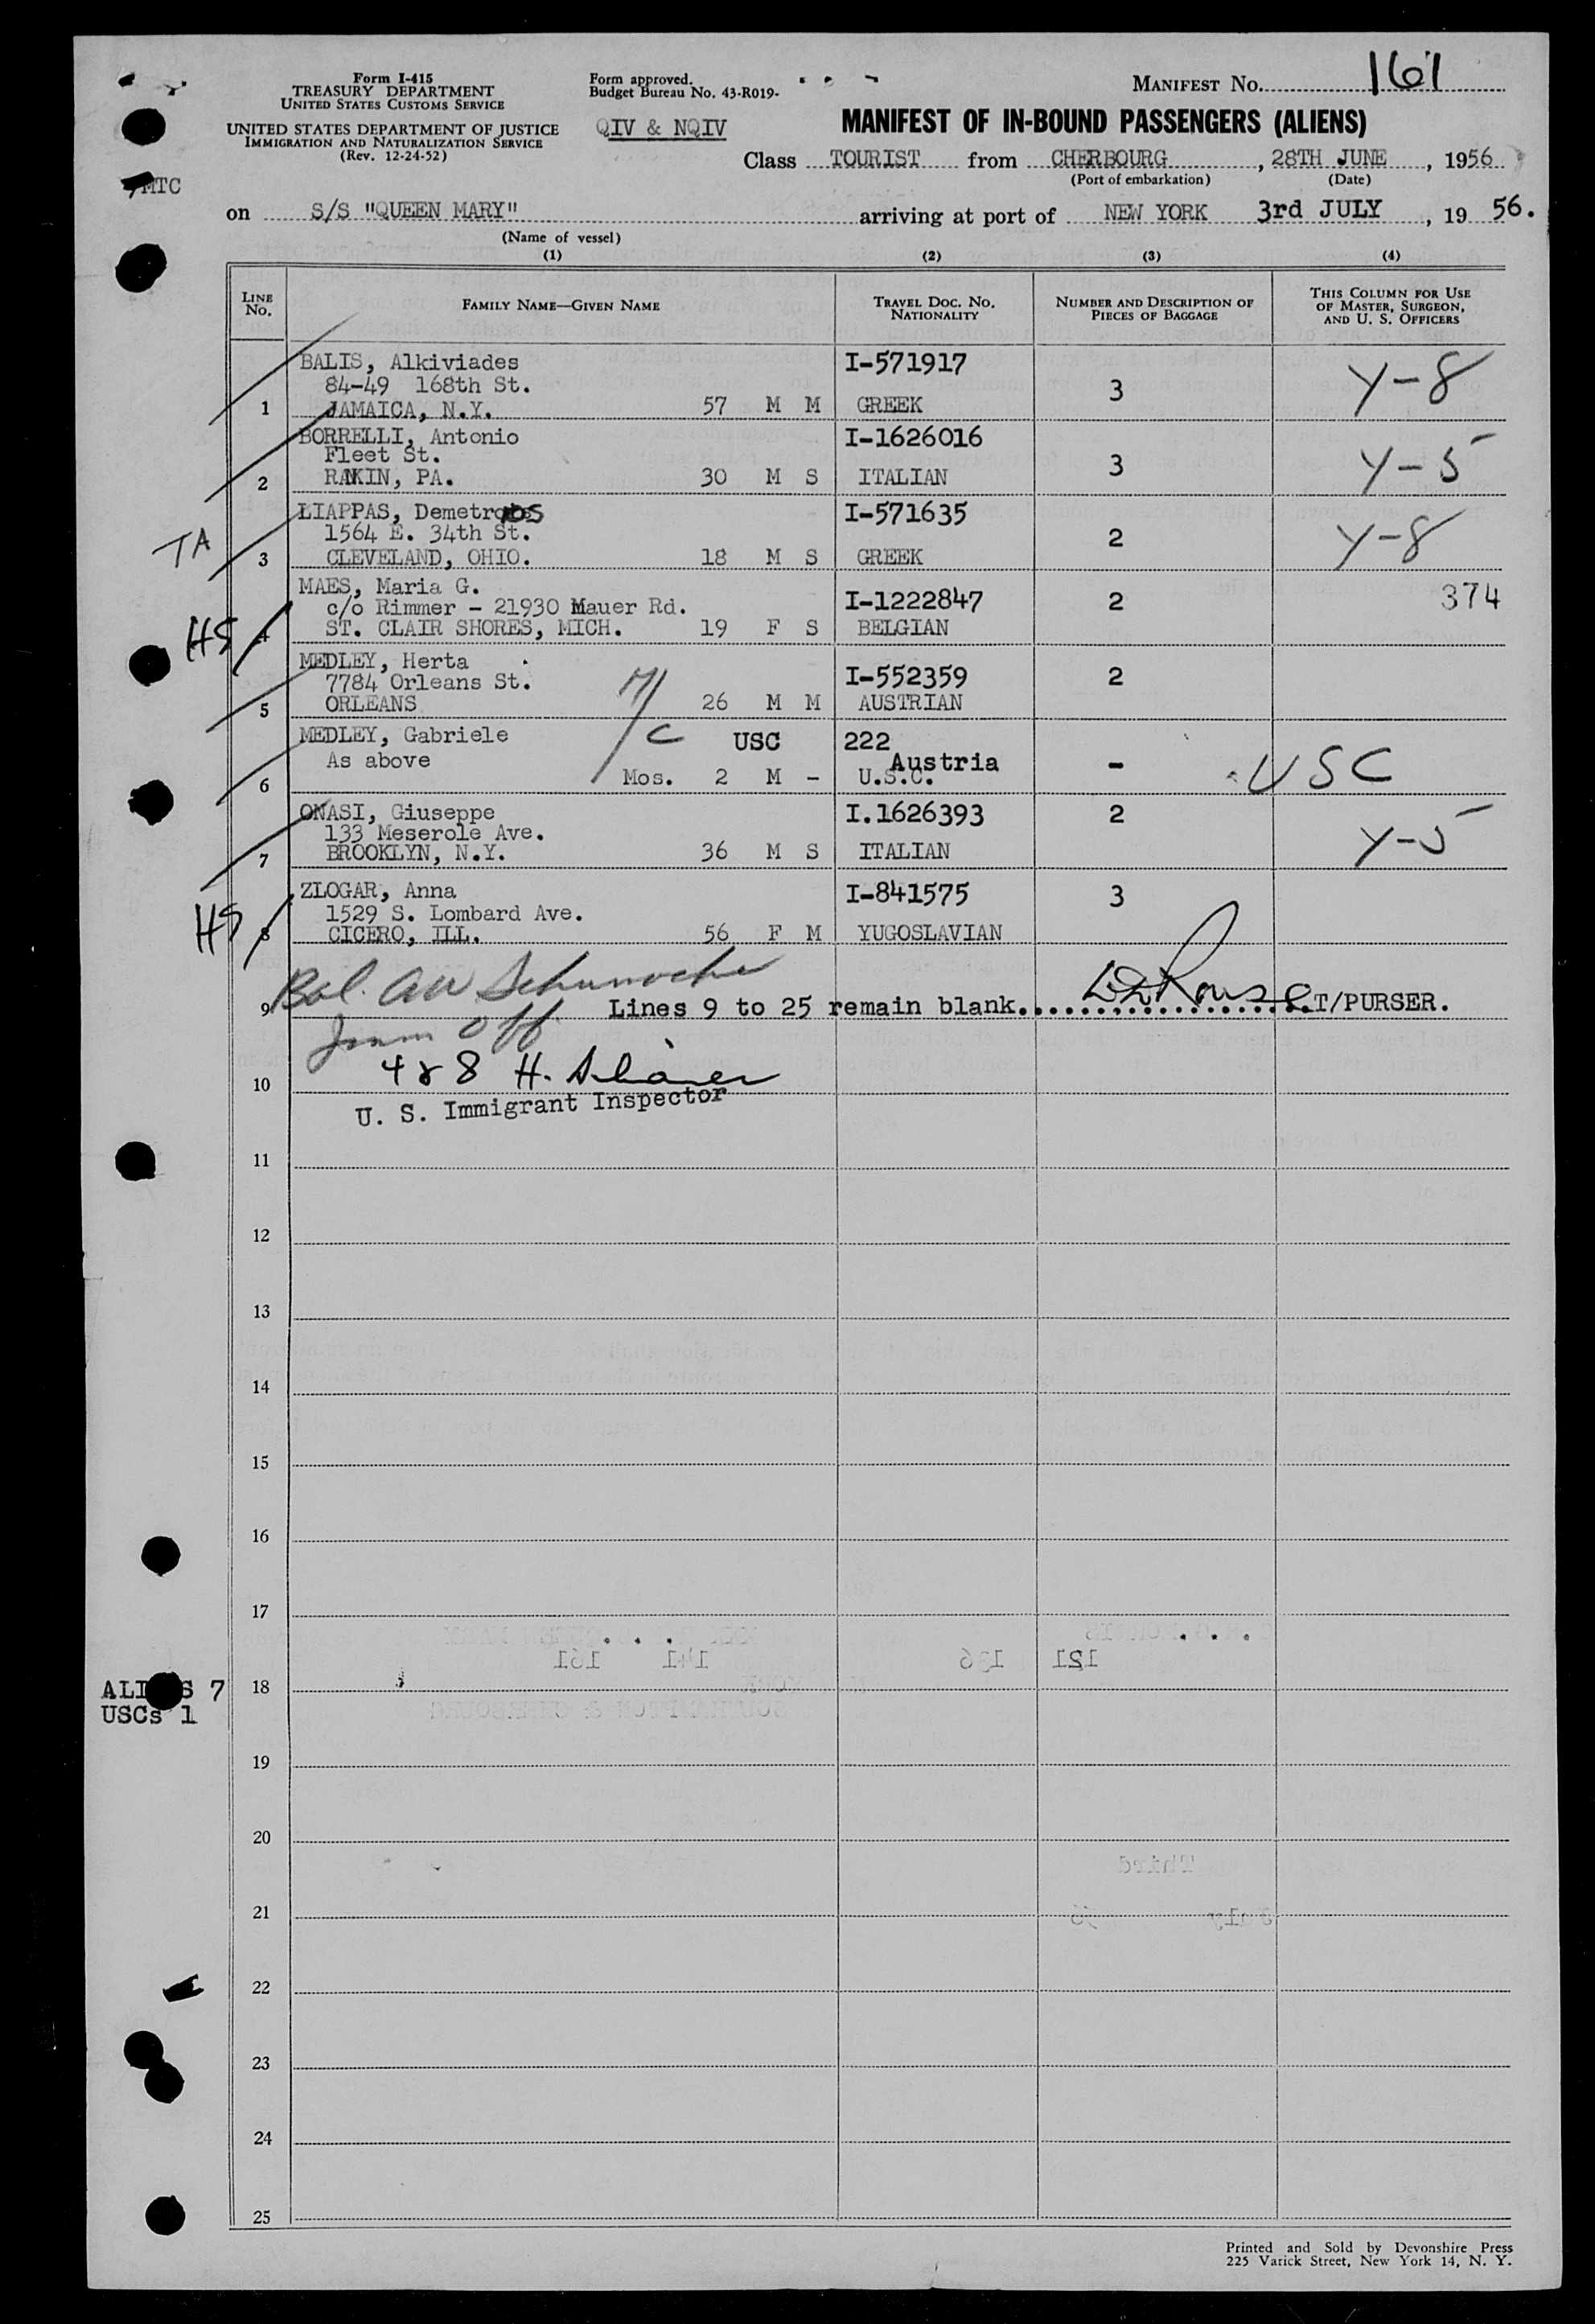 Form I-415
TREASURY DEPARTMENT
UNITED STATES CUSTOMS SERVICE
UNITED STATES DEPARTMENT OF JUSTICE
IMMIGRATION AND NATURALIZATION SERVICE
(Rev. 12-24-52)
MTC
Form approved.
Budget Bureau No. 43-R019-
QIV & NQIV
MANIFEST NO. 161
MANIFEST OF IN-BOUND PASSENGERS (ALIENS)
Class TOURIST from CHERBOURG, 28TH JUNE, 1956
(Port of embarkation) (Date)
on S/S "QUEEN MARY" arriving at port of NEW YORK 3rd JULY, 19 56.
(Name of vessel)
(1) (2) (3) (4)
LINE NO. FAMILY NAME—GIVEN NAME TRAVEL DOC. NO. NATIONALITY NUMBER AND DESCRIPTION OF PIECES OF BAGGAGE THIS COLUMN FOR USE OF MASTER, SURGEON, AND U. S. OFFICERS
BALIS, Alkiviades I-571917
84-49 168th St. 3 Y-8
1 JAMAICA, N.Y. 57 M M GREEK
BORRELLI, Antonio I-1626016
Fleet St. 3 Y-5
2 RANKIN, PA. 30 M S ITALIAN
LIAPPAS, Demetrios I-571635
TA 1564 E. 34th St. 2 Y-8
3 CLEVELAND, OHIO. 18 M S GREEK
MAES, Maria G. I-1222847 2 374
HS c/o Rimmer - 21930 Mauer Rd.
4 ST. CLAIR SHORES, MICH. 19 F S BELGIAN
MEDLEY, Herta I-552359 2
7784 Orleans St.
5 ORLEANS 26 M M AUSTRIAN
M/C
MEDLEY, Gabriele USC 222
As above Austria - USC
6 Mos. 2 M - U.S.C.
ONASI, Giuseppe I.1626393 2
133 Meserole Ave. Y-5
7 BROOKLYN, N.Y. 36 M S ITALIAN
ZLOGAR, Anna I-841575 3
HS 1529 S. Lombard Ave.
8 CICERO, ILL. 56 F M YUGOSLAVIAN
Bal. AW
9 Lines 9 to 25 remain blank. T/PURSER.
Imm Off
4 & 8 H.
10
U. S. Immigrant Inspector
11
12
13
14
15
16
17
161 141 136 121
ALIENS 7 18
USCs 1
SOUTHAMPTON & CHERBOURG
19
20
Third
21
July 56
22
23
24
25
Printed and Sold by Devonshire Press
225 Varick Street, New York 14, N. Y.